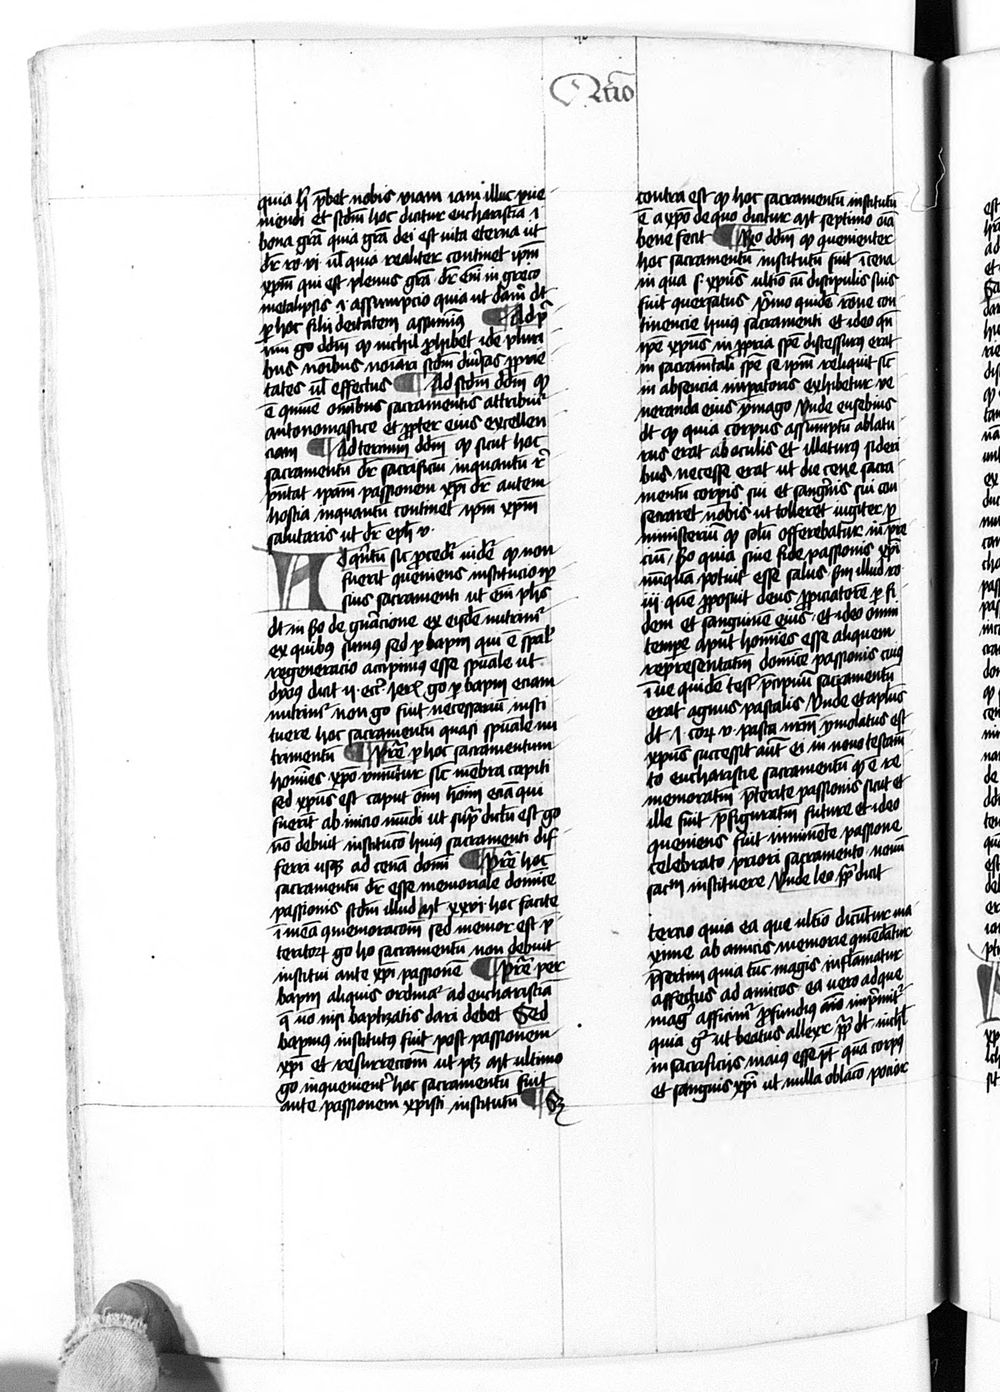 Actio
quia sci p̄bet nobis viam iam illuc ꝑue
niendi et scdm hoc dicitur eucharistia i
bona grā quia grā dei est vita eterna ut
dr̄ ro vi ul quia realiter continet ipm
xpm qui est plenus grā dr̄ em̄ in greco
metalipsis i assumpcio quia ut dam̄ dt
ꝑ hoc filii deitatem assumimus Ad p̄
mū go ddm ꝙ nichil ꝓhibet idē pluri
bus noībus noīari scdm diūsas ꝓprie
tates ul effectus Ad scdm ddm ꝙ
ē omnibus sacramentis attribuit᷑
antonomastice et ꝓpter eius excellen
ciam Ad tercium ddm ꝙ sicut hoc
sacramentū dr̄ sacrificiū inquantū r̄
p̄ntat ipam passionem xpi dr̄ autem
hostia inquantū continet ipm xpm
salutaris ut dr̄ eph v
Ad quintū sic ꝓcedit᷑ videt᷑ ꝙ non
fuerit queniens institucio ip̄
sius sacramenti ut em̄ phs
dt in ꝯo de gnāracione ex eisdē nutrimur
ex quibus sumus sed ꝑ bapm̄ qui ē spūal᷑
regeneracio accipimus esse spūale ut
dyoīs dicit ii ecc᷑ ierl᷑ go ꝑ bapm̄ eciam
nutrimur non go fuit necessarium insti
tuere hoc sacramentū quasi spūale nu
trimentū Pret᷑ ꝑ hoc sacramentum
homines xpo vniūtur sic mēbra capiti
sed xpus est caput oīm hoīm eciā qui
fuerūt ab inicio mūdi ut supra dictū est go
nō debuit institucō huius sacramenti dif
ferri usꝙ ad cenā domi Pret᷑ hoc
sacramentū dr̄ esse memoriale domice
passionis scdm illud mt xxvi hoc facite
ī meā qmemoracōm sed memor est p̄
teritoꝝ go ho sacramentū non debuit
institui ante xpi passionē Pret᷑ per
bapm̄ aliquis ordinat᷑ ad eucharistiā
q̄ nō nisi baptizatis dari debet Sed
bapmus institutus fuit post passionem
xpi et resurrectōm ut ptz mt ultimo
go inquenient᷑ hoc sacramentū fuit
ante passionem xpisti institutū Sꝫ
contra est ꝙ hoc sacramentū institutū
ē a xpo de quo dicitur mt septimo oīa
bene fecit Rō ddm ꝙ quenienter
hoc sacramentū institutū fuit ī cena
in qua s xpus ultīo cū discipulis suis
fuit quersatus p̄mo quidē rōne con
tinencie huius sacramenti et ideo qn̄
ipe xpus in ꝓpria spē discessurus erat
in sacramētali spē se ipm reliquit sic
in absencia impatoris exhibetur ve
neranda eius ymago Vnde eusebius
dt ꝙ quia corpus assumptū ablatu
rus erat ab oculis et illaturus sideri
bus necesse erat ut die cene sacra
mentu corpis sui et sanguīs sui con
secraret nobis ut tolleret iugiter ꝑ
ministeriū ꝙ solū offerebatur in pre
ciū Scdo quia sine fide passionis xpi
nūquā potuit esse salus scdm illud ro
iii quē ꝓposuit deus ꝓpiciatorē ꝑ fi
dem et sanguinē eius et ideo omni
tempe aput homines esse aliquem
representatiū domice passionis cuius
ī ve quidē test᷑ p̄cipuū sacramentū
erat agnus pascalis Vnde et aplus
dt i cor v pasca nrm̄ ymolatus est
xpus successit aut̄ ei in nouo testam̄
to eucharistie sacramentū ꝙ ē re
memoratiū p̄terite passionis sicut et
ille fuit p̄figuratiū future et ideo
queniens fuit imminēte passione
celebrato priori sacramento nouū
sacrm̄ instituere Vnde leo pp dicit
tercio quia ea que ultīo dicūtur ma
xime ab amicis memorie qmēdātur
p̄sertim quia tūc magis inflamatur
affectus ad amicos ea uero ad que
magis afficimur ꝓfundius aīo inprimūt᷑
quia g᷑ ut beatus allexr pp dt nichil
in sacrificiis maius esse pōt quā corpus
et sanguis xpi ut nulla oblacō pocior